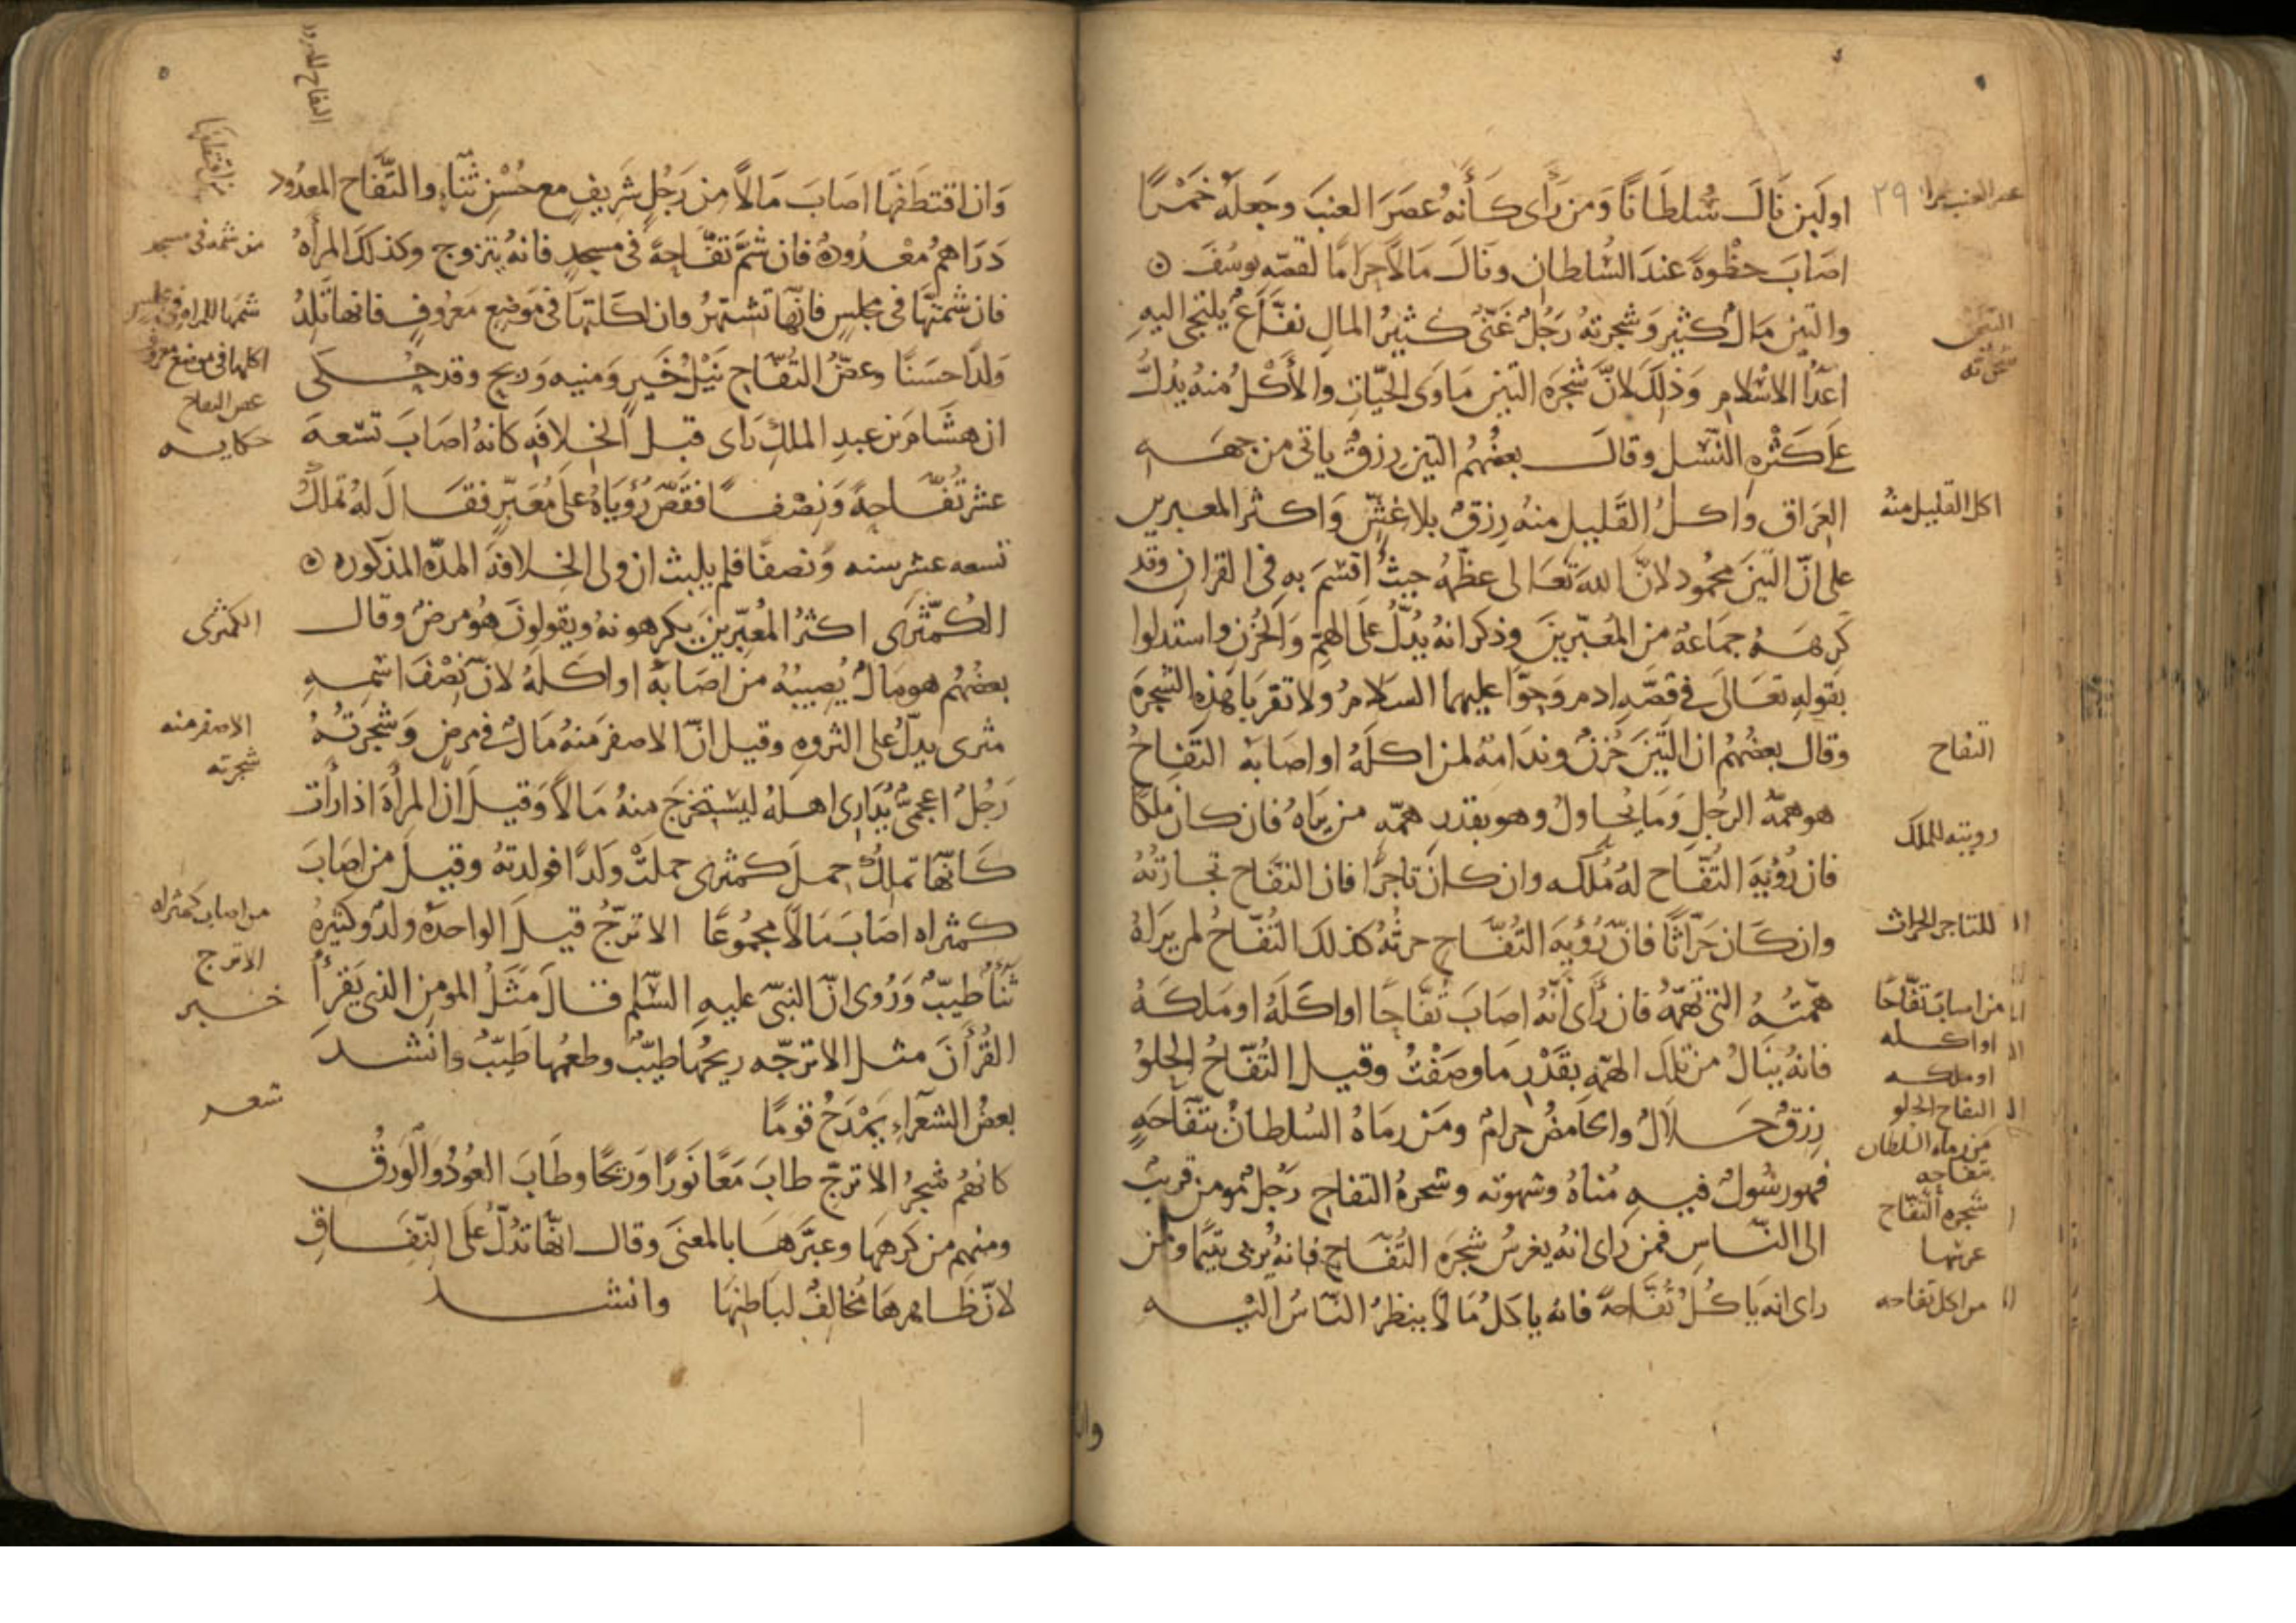 او لبن نَالَ سُلطَانًا وَمن رَأى كَأَنهُ عصَرَ العنبَ وجَعلَهُ خَمْرًا
اصَابَ حظْوةً عندَ السُّلطان ونَالَ مَالًا حرَامًا لقصّهِ يوسُفَ
والتين مَالٌ كثير وَشجرتهُ رَجُلٌ غَنّى كثيرُ المال نفّاع يلتجى اليهِ
اعدآ الاسْلامِ وَذلكَ لانّ شجَره التين مَاوَى الحيّاتِ والأَكْلُ منهُ يدُلُّ
على كثْرهِ النّسْل وقالَ بعضُهُم التين رزقٌ ياتى من جهه
العرَاق واكلُ القَليل منهُ رزقٌ بلا غشّ وَاكثر المعبرين
على انّ التينَ محمُود لانّ اللهَ تعَالى عظّمهُ حيثُ اقسَمَ بهِ فى القران وقد
كَرِهَهُ جمَاعهٌ من المُعَبّرينَ وذكر انهُ يدُلُّ على الهمّ وَالحُزن واستَدلوا
بقولهِ تعَالَى فى قصّهِ ادم وَحوّا عليهما السَلامُ ولا تقربَا هَذهِ الشجرَهَ
وقال بعضُهُم ان التّينَ حُزنٌ وندَامهٌ لمن اكلَهُ او اصابهُ التفاحُ
هو همّهُ الرجُلِ وَمَا يُحاولُ وهو بقدرِ همّهِ من يرَاهُ فان كانَ ملكًا
فان رُؤيَهَ التُفّاح لهُ مُلكه وان كان تاجرًا فان التفَّاح تجارتُهُ
وان كَان حَرّاثًا فانّ رُؤيَهَ التُفّاحِ حرثُهُ كذلكَ التُفّاحُ لمن يَراهُ
همّتُهُ التى تهمّهُ فان رَأى أنّهُ اصَابَ تُفّاحًا او اكَلهُ او مَلكَهُ
فانهُ ينَالُ من تلكَ الهمّهِ بقَدْرِ ما وصَفْتُ وقيل التُفّاحُ الحلوُ
رزقٌ حَلالٌ والحَامضُ حرامٌ ومَنْ رمَاهُ السُلطانُ بتفّاحَهٍ
فهو رسُولٌ فيهِ مُناهُ وشهوته وشجرهُ التفاح رَجُلٌ مومن قريبٌ
الى النّاسِ فمن رَاى انهُ يغرسُ شجرَه التُفّاحِ فانهُ يُربى يتيمًا ومن
راى انه يَاكُلُ تُفّاحهً فانهُ ياكلُ مَالًا ينظرُ النّاسُ اليْهِ
٢٩
التين
اكل القليل منهُ
التفاح
رويته للملك
للتاجر الحراث
من اصاب تفّاحًا
او اكله
او ملكه
التفاح الحلو
من رماه السلطان
بتفاحه
شجره التفّاح
من اكل تفاحه
وَان اقتطَفهَا اصَابَ مَالًا من رَجُلٍ شَريفٍ مع حُسْنِ ثنّاءٍ والتّفّاح المعدُود
دَرَاهمُ معْدُودهٌ فان شمَّ تفّاحهً فى مسجدٍ فانهُ يتزوج وكذلكَ المرأهُ
فان شمتهَا فى مجلسٍ فانّها تشتهرُ وان اكلتهَا فى مَوضعٍ مَعرُوفٍ فانها تَلدُ
وَلدًا حسَنًا وعضُّ التُفّاحِ نَيْلُ خَيرٍ وَمنيه وَربح وقد حُكىَ
ان هشَامَ بن عبدِ الملكِ رَاى قبل الخلافهِ كانهُ اصَابَ تسْعهَ
عشر تفّاحهً وَنصْفًا فقَصّ رُؤيَاهُ على مُعَبّرٍ فقَالَ لهُ تملكُ
تسعه عشر سنه وَنصفًا فلم يلبث ان ولى الخلافهَ المدّه المذكوره
الكُمّثرَى اكثرُ المُعبّرينَ يكرهونهُ ويقولونَ هُو مرضٌ وقال
بعضُهُم هو مَالٌ يُصيبُهُ من اصَابهُ او اكلهُ لانّ نصْفَ اسْمهِ
مثرى يدلّ على الثروهِ وقيل انّ الاصفر منهُ مَالٌ فى مرضٍ وَشجرَتُهُ
رَجُلٌ اعجمىٌّ يُدَارِى اهلهُ ليستخرجَ منهُ مَالًا وَقيلَ انّ المرأَهَ اذا رأَت
كَانّهَا تملكُ حملَ كمثرى حملتْ وَلدًا فولدتهُ وقيلَ من اصَابَ
كمثراه اصَابَ مَالًا مجمُوعًا الاترجُّ قيلَ الواحدهُ ولدٌ وكثيرهُ
ثَنَاءٌ طيبّ وَرُوى انّ النبىّ عليهِ السَّلم قالَ مَثَلُ المومن الذى يَقرأُ
القُرْأنَ مثل الاترجّه ريحُها طيّبٌ وطعمُها طَيّبٌ وانشدَ
بعضُ الشعَراءِ يَمْدَحُ قومًا
كانهُم شجرُ الاترجّ طابَ مَعًا نَورًا وَريحًا وطَابَ العوُدُ وَالوَرقُ
ومنهم من كرهَهَا وعبّرَهَا بالمعنىَ وقال انّها تدُلّ على النّفَاقِ
لانّ ظَاهرهَا مُخالفٌ لبَاطنهَا وانشد
من شمه فى مسجد
شمها للمراه فى مجلس
اكلها فى موضع معروف
عض التفاح
حكايه
الكمثرى
الاصفر منه
شجرته
من اصاب كمثراه
الاترج
خبر
شعر